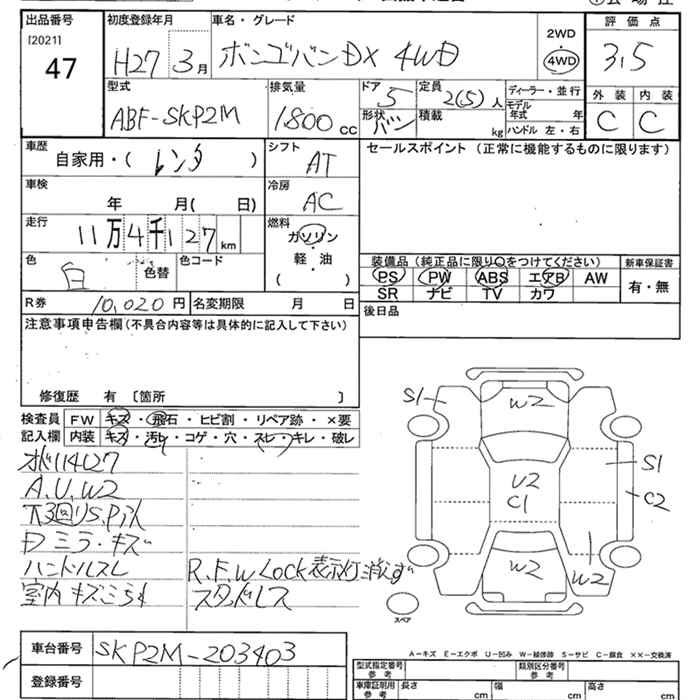 出品番号
[2021]
47
初度登録年月
H27 3月
車名・グレード
ボンゴバンDX 4WD
2WD
4WD
評価点
3.5
外装 内装
C C
型式
ABF-SKP2M
排気量
1800 cc
ドア
5
定員
2(5)人
形状
バン
積載
kg
ディーラー・並行
モデル年式 年
ハンドル 左・右
車歴
自家用・(レンタ)
シフト
AT
セールスポイント (正常に機能するものに限ります)
車検
年 月( 日)
冷房
AC
走行
11万4千127km
燃料
ガソリン
軽・油
( )
色
白
色替
色コード
装備品(純正品に限り○をつけてください)
PS PW ABS エアB AW
SR ナビ TV カワ
新車保証書
有・無
R券
10,020円
名変期限 月 日
後日品
注意事項申告欄(不具合内容等は具体的に記入して下さい)
修復歴 有 〔箇所 〕
検査員記入欄
FW キズ・飛石・ヒビ割・リペア跡・×要
内装 キズ・汚れ・コゲ・穴・スレ・キレ・破レ
A.U.W2
ミラ・キズ
ハンドルスレ
R.F.W LOCK表示灯消えず
室内キズ
S1
W2
U2
C1
S1
C2
W2
W2
スペア
A-キズ E-エクボ U-凹み W-補修跡 S-サビ C-腐食 ××-交換済
車台番号
SKP2M-203403
登録番号
型式指定番号
参考
類別区分番号
参考
車庫証明用
参考
長さ cm
幅 cm
高さ cm